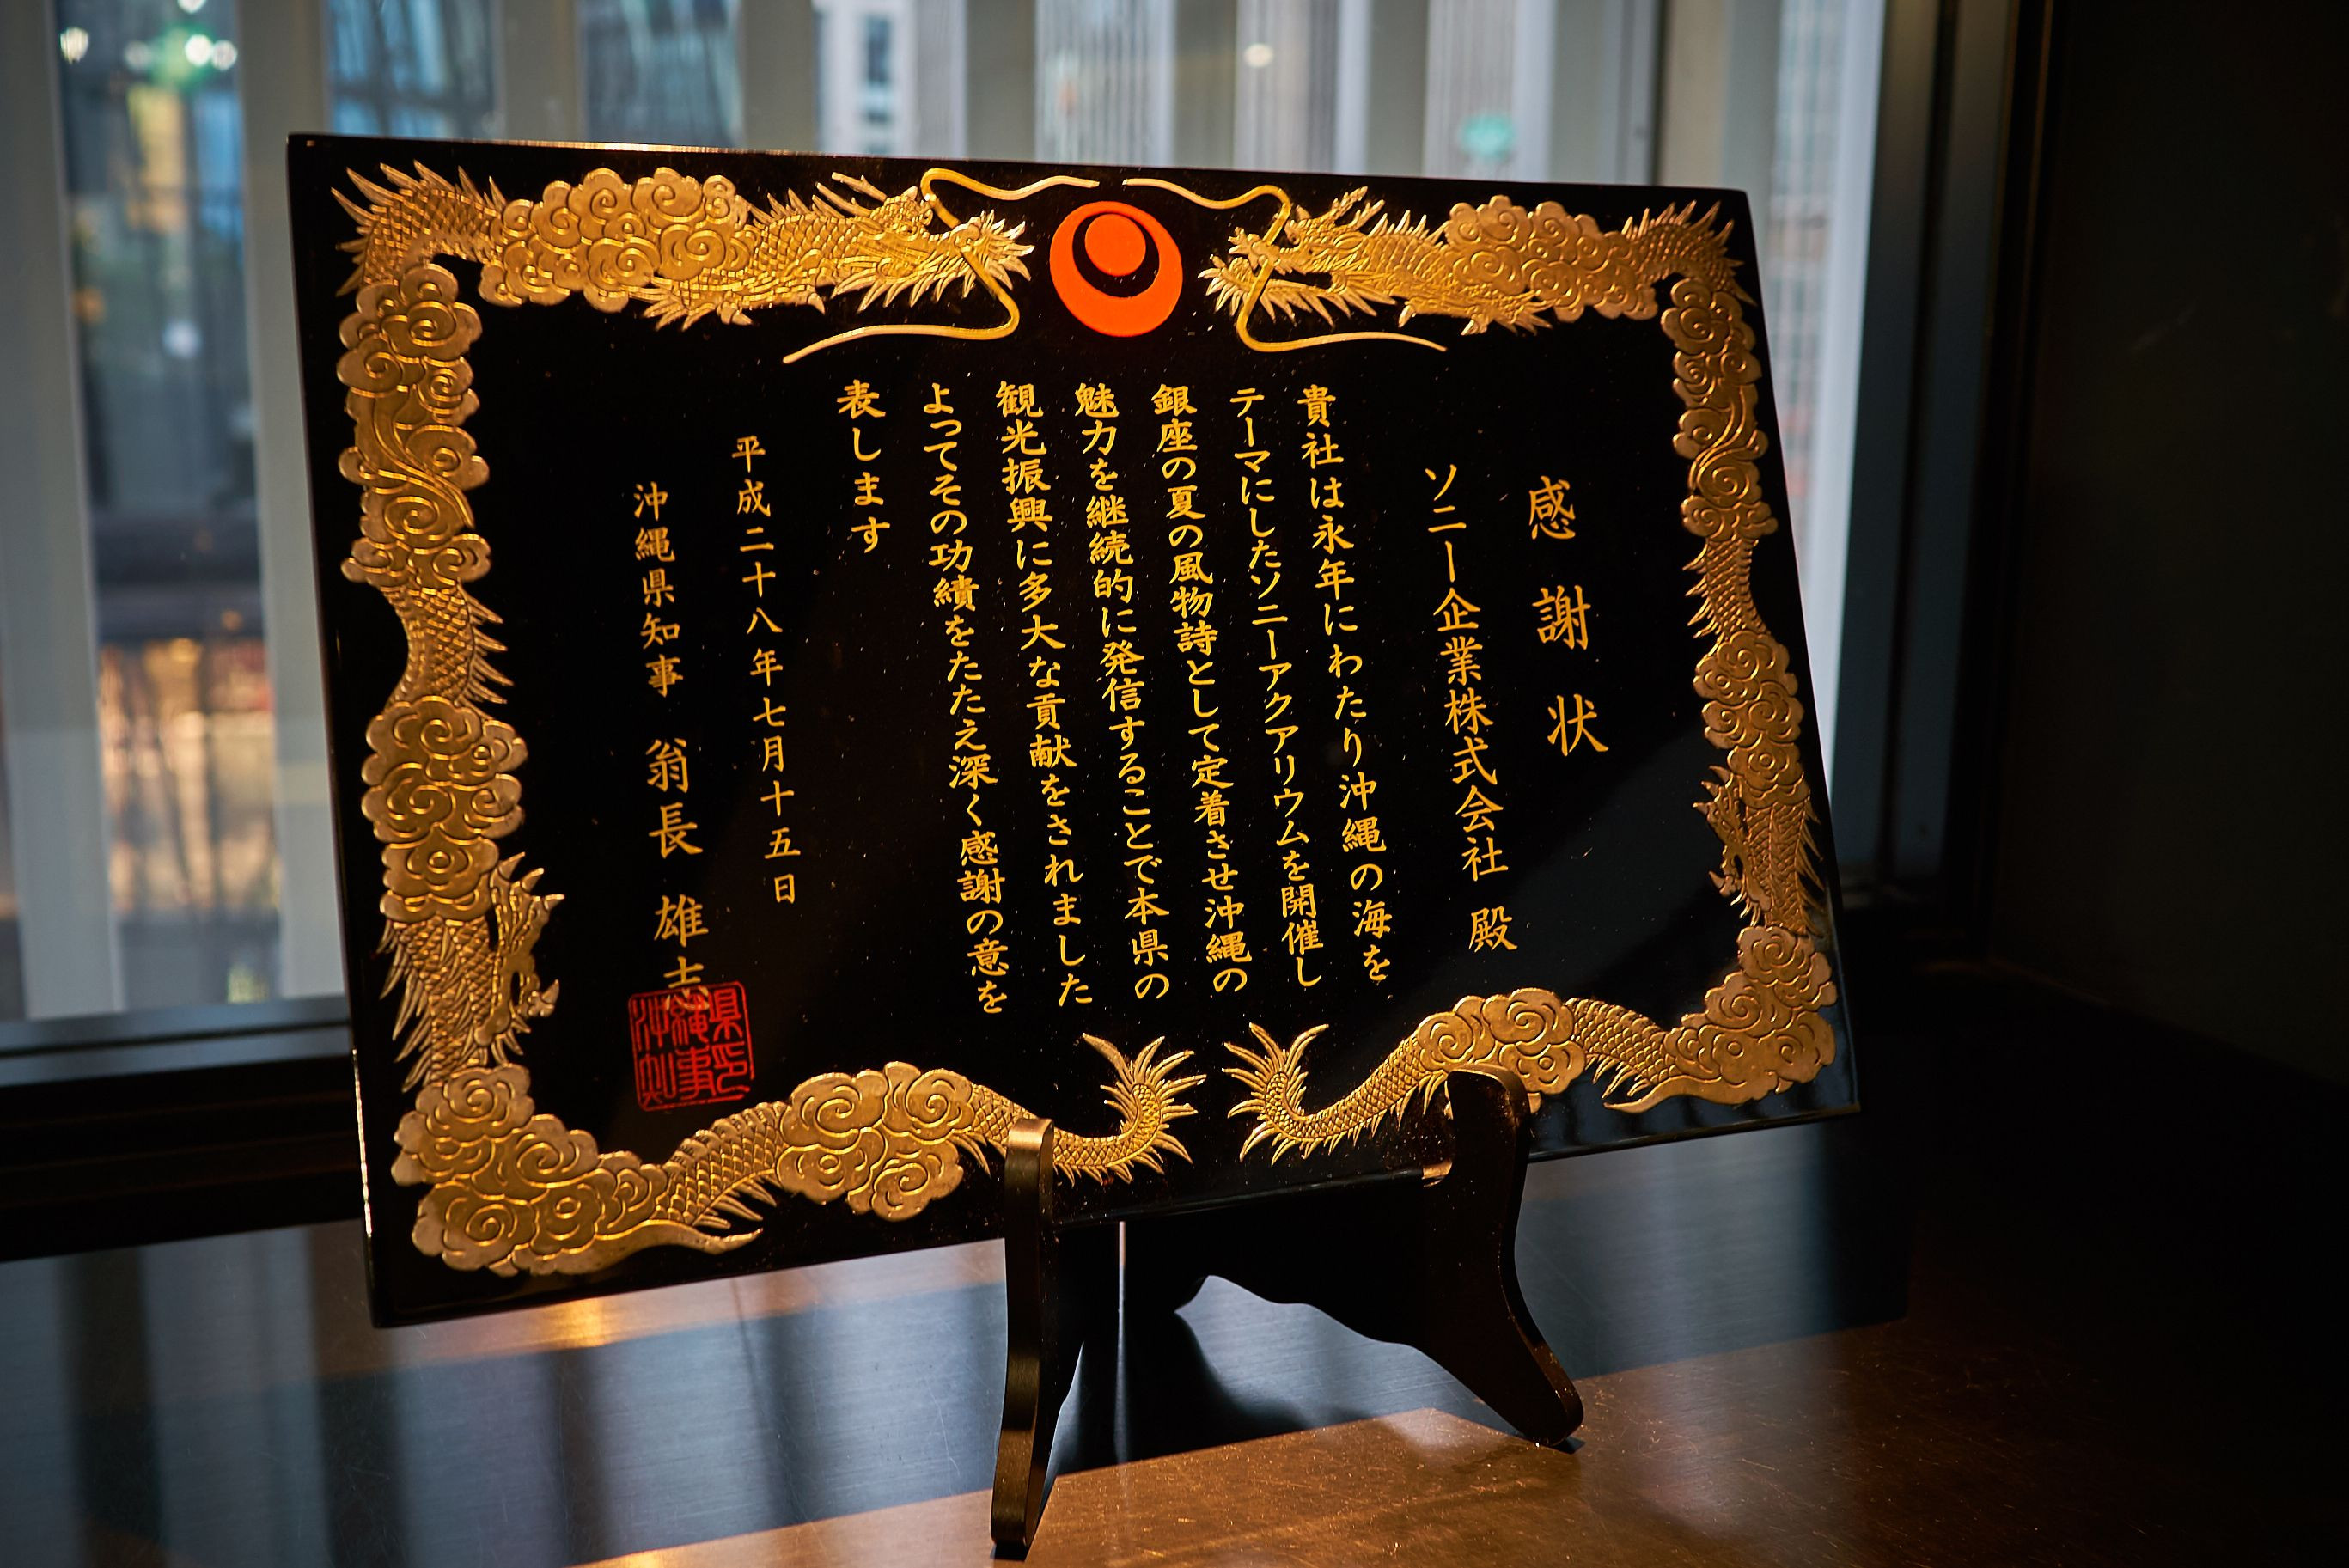 感謝状
ソニー企業株式会社 殿
貴社は永年にわたり沖縄の海を
テーマにしたソニーアクアリウムを開催し
銀座の夏の風物詩として定着させ沖縄の
魅力を継続的に発信することで本県の
観光振興に多大な貢献をされました
よってその功績をたたえ深く感謝の意を
表します
平成二十八年七月十五日
沖縄県知事 翁長 雄志
県印
縄事
沖知